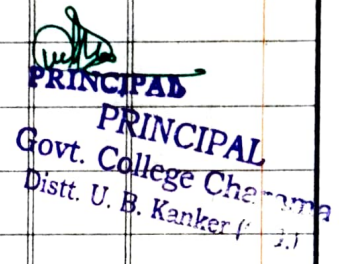 PRINCIPAL
PRINCIPAL
Govt. College Charama
Distt. U. B. Kanker (